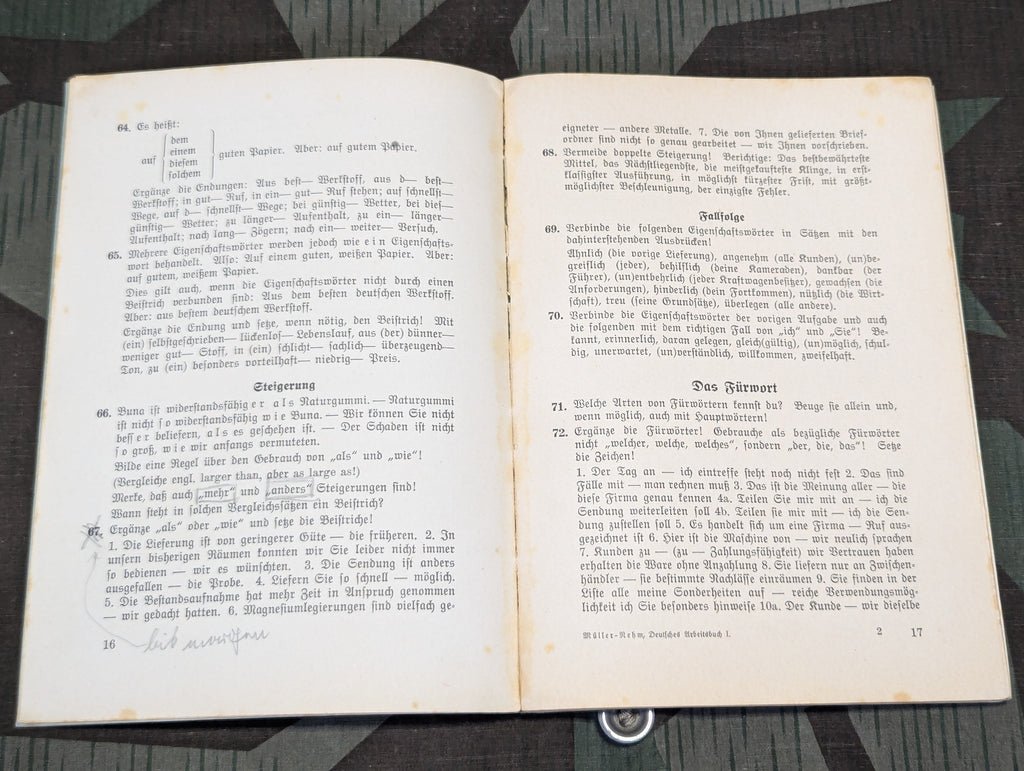 64. Es heißt:
auf
dem
einem
diesem
solchem
guten Papier. Aber: auf gutem Papier.
Ergänze die Endungen: Aus best— Werkstoff, aus d— best—
Werkstoff; in gut— Ruf, in ein— gut— Ruf stehen; auf schnellst—
Wege, auf d— schnellst— Wege; bei günstig— Wetter, bei dies—
günstig— Wetter; zu länger— Aufenthalt, zu ein— länger—
Aufenthalt; nach lang— Zögern; nach ein— weiter— Versuch.
65. Mehrere Eigenschaftswörter werden jedoch wie ein Eigenschafts-
wort behandelt. Also: Auf einem guten, weißen Papier. Aber:
auf gutem, weißem Papier.
Dies gilt auch, wenn die Eigenschaftswörter nicht durch einen
Beistrich verbunden sind: Aus dem besten deutschen Werkstoff.
Aber: aus bestem deutschem Werkstoff.
Ergänze die Endung und setze, wenn nötig, den Beistrich! Mit
(ein) selbstgeschrieben— lückenlos— Lebenslauf, aus (der) dünner—
weniger gut— Stoff, in (ein) schlicht— sachlich— überzeugend—
Ton, zu (ein) besonders vorteilhaft— niedrig— Preis.
Steigerung
66. Buna ist widerstandsfähiger als Naturgummi. — Naturgummi
ist nicht so widerstandsfähig wie Buna. — Wir können Sie nicht
besser beliefern, als es geschehen ist. — Der Schaden ist nicht
so groß, wie wir anfangs vermuteten.
Bilde eine Regel über den Gebrauch von „als" und „wie"!
(Vergleiche engl. larger than, aber as large as!)
Merke, daß auch „mehr" und „anders" Steigerungen sind!
Wann steht in solchen Vergleichssätzen ein Beistrich?
67. Ergänze „als" oder „wie" und setze die Beistriche!
1. Die Lieferung ist von geringerer Güte — die früheren. 2. In
unsern bisherigen Räumen konnten wir Sie leider nicht immer
so bedienen — wir es wünschten. 3. Die Sendung ist anders
ausgefallen — die Probe. 4. Liefern Sie so schnell — möglich.
5. Die Bestandsaufnahme hat mehr Zeit in Anspruch genommen
— wir gedacht hatten. 6. Magnesiumlegierungen sind vielfach ge-
16
bis morgen
eigneter — andere Metalle. 7. Die von Ihnen gelieferten Brief-
ordner sind nicht so genau gearbeitet — wir Ihnen vorschrieben.
68. Vermeide doppelte Steigerung! Berichtige: Das bestbewährteste
Mittel, das Nächstliegendste, die meistgekaufteste Klinge, in erst-
klassigster Ausführung, in möglichst kürzester Frist, mit größt-
möglichster Beschleunigung, der einzigste Fehler.
Fallfolge
69. Verbinde die folgenden Eigenschaftswörter in Sätzen mit den
dahinterstehenden Ausdrücken!
Ähnlich (die vorige Lieferung), angenehm (alle Kunden), (un)be-
greiflich (jeder), behilflich (deine Kameraden), dankbar (der
Führer), (un)entbehrlich (jeder Kraftwagenbesitzer), gewachsen (die
Anforderungen), hinderlich (dein Fortkommen), nützlich (die Wirt-
schaft), treu (seine Grundsätze), überlegen (alle andere).
70. Verbinde die Eigenschaftswörter der vorigen Aufgabe und auch
die folgenden mit dem richtigen Fall von „ich" und „Sie"! Be-
kannt, erinnerlich, daran gelegen, gleich(gültig), (un)möglich, schul-
dig, unerwartet, (un)verständlich, willkommen, zweifelhaft.
Das Fürwort
71. Welche Arten von Fürwörtern kennst du? Beuge sie allein und,
wenn möglich, auch mit Hauptwörtern!
72. Ergänze die Fürwörter! Gebrauche als bezügliche Fürwörter
nicht „welcher, welche, welches", sondern „der, die, das"! Setze
die Zeichen!
1. Der Tag an — ich eintreffe steht noch nicht fest 2. Das sind
Fälle mit — man rechnen muß 3. Das ist die Meinung aller — die
diese Firma genau kennen 4a. Teilen Sie mir mit an — ich die
Sendung weiterleiten soll 4b. Teilen sie mir mit — ich die Sen-
dung zustellen soll 5. Es handelt sich um eine Firma — Ruf aus-
gezeichnet ist 6. Hier ist die Maschine von — wir neulich sprachen
7. Kunden zu — (zu — Zahlungsfähigkeit) wir Vertrauen haben
erhalten die Ware ohne Anzahlung 8. Sie liefern nur an Zwischen-
händler — sie bestimmte Nachlässe einräumen 9. Sie finden in der
Liste alle meine Sonderheiten auf — reiche Verwendungsmög-
lichkeit ich Sie besonders hinweise 10a. Der Kunde — wir dieselbe
Müller-Rehm, Deutsches Arbeitsbuch I.
2
17